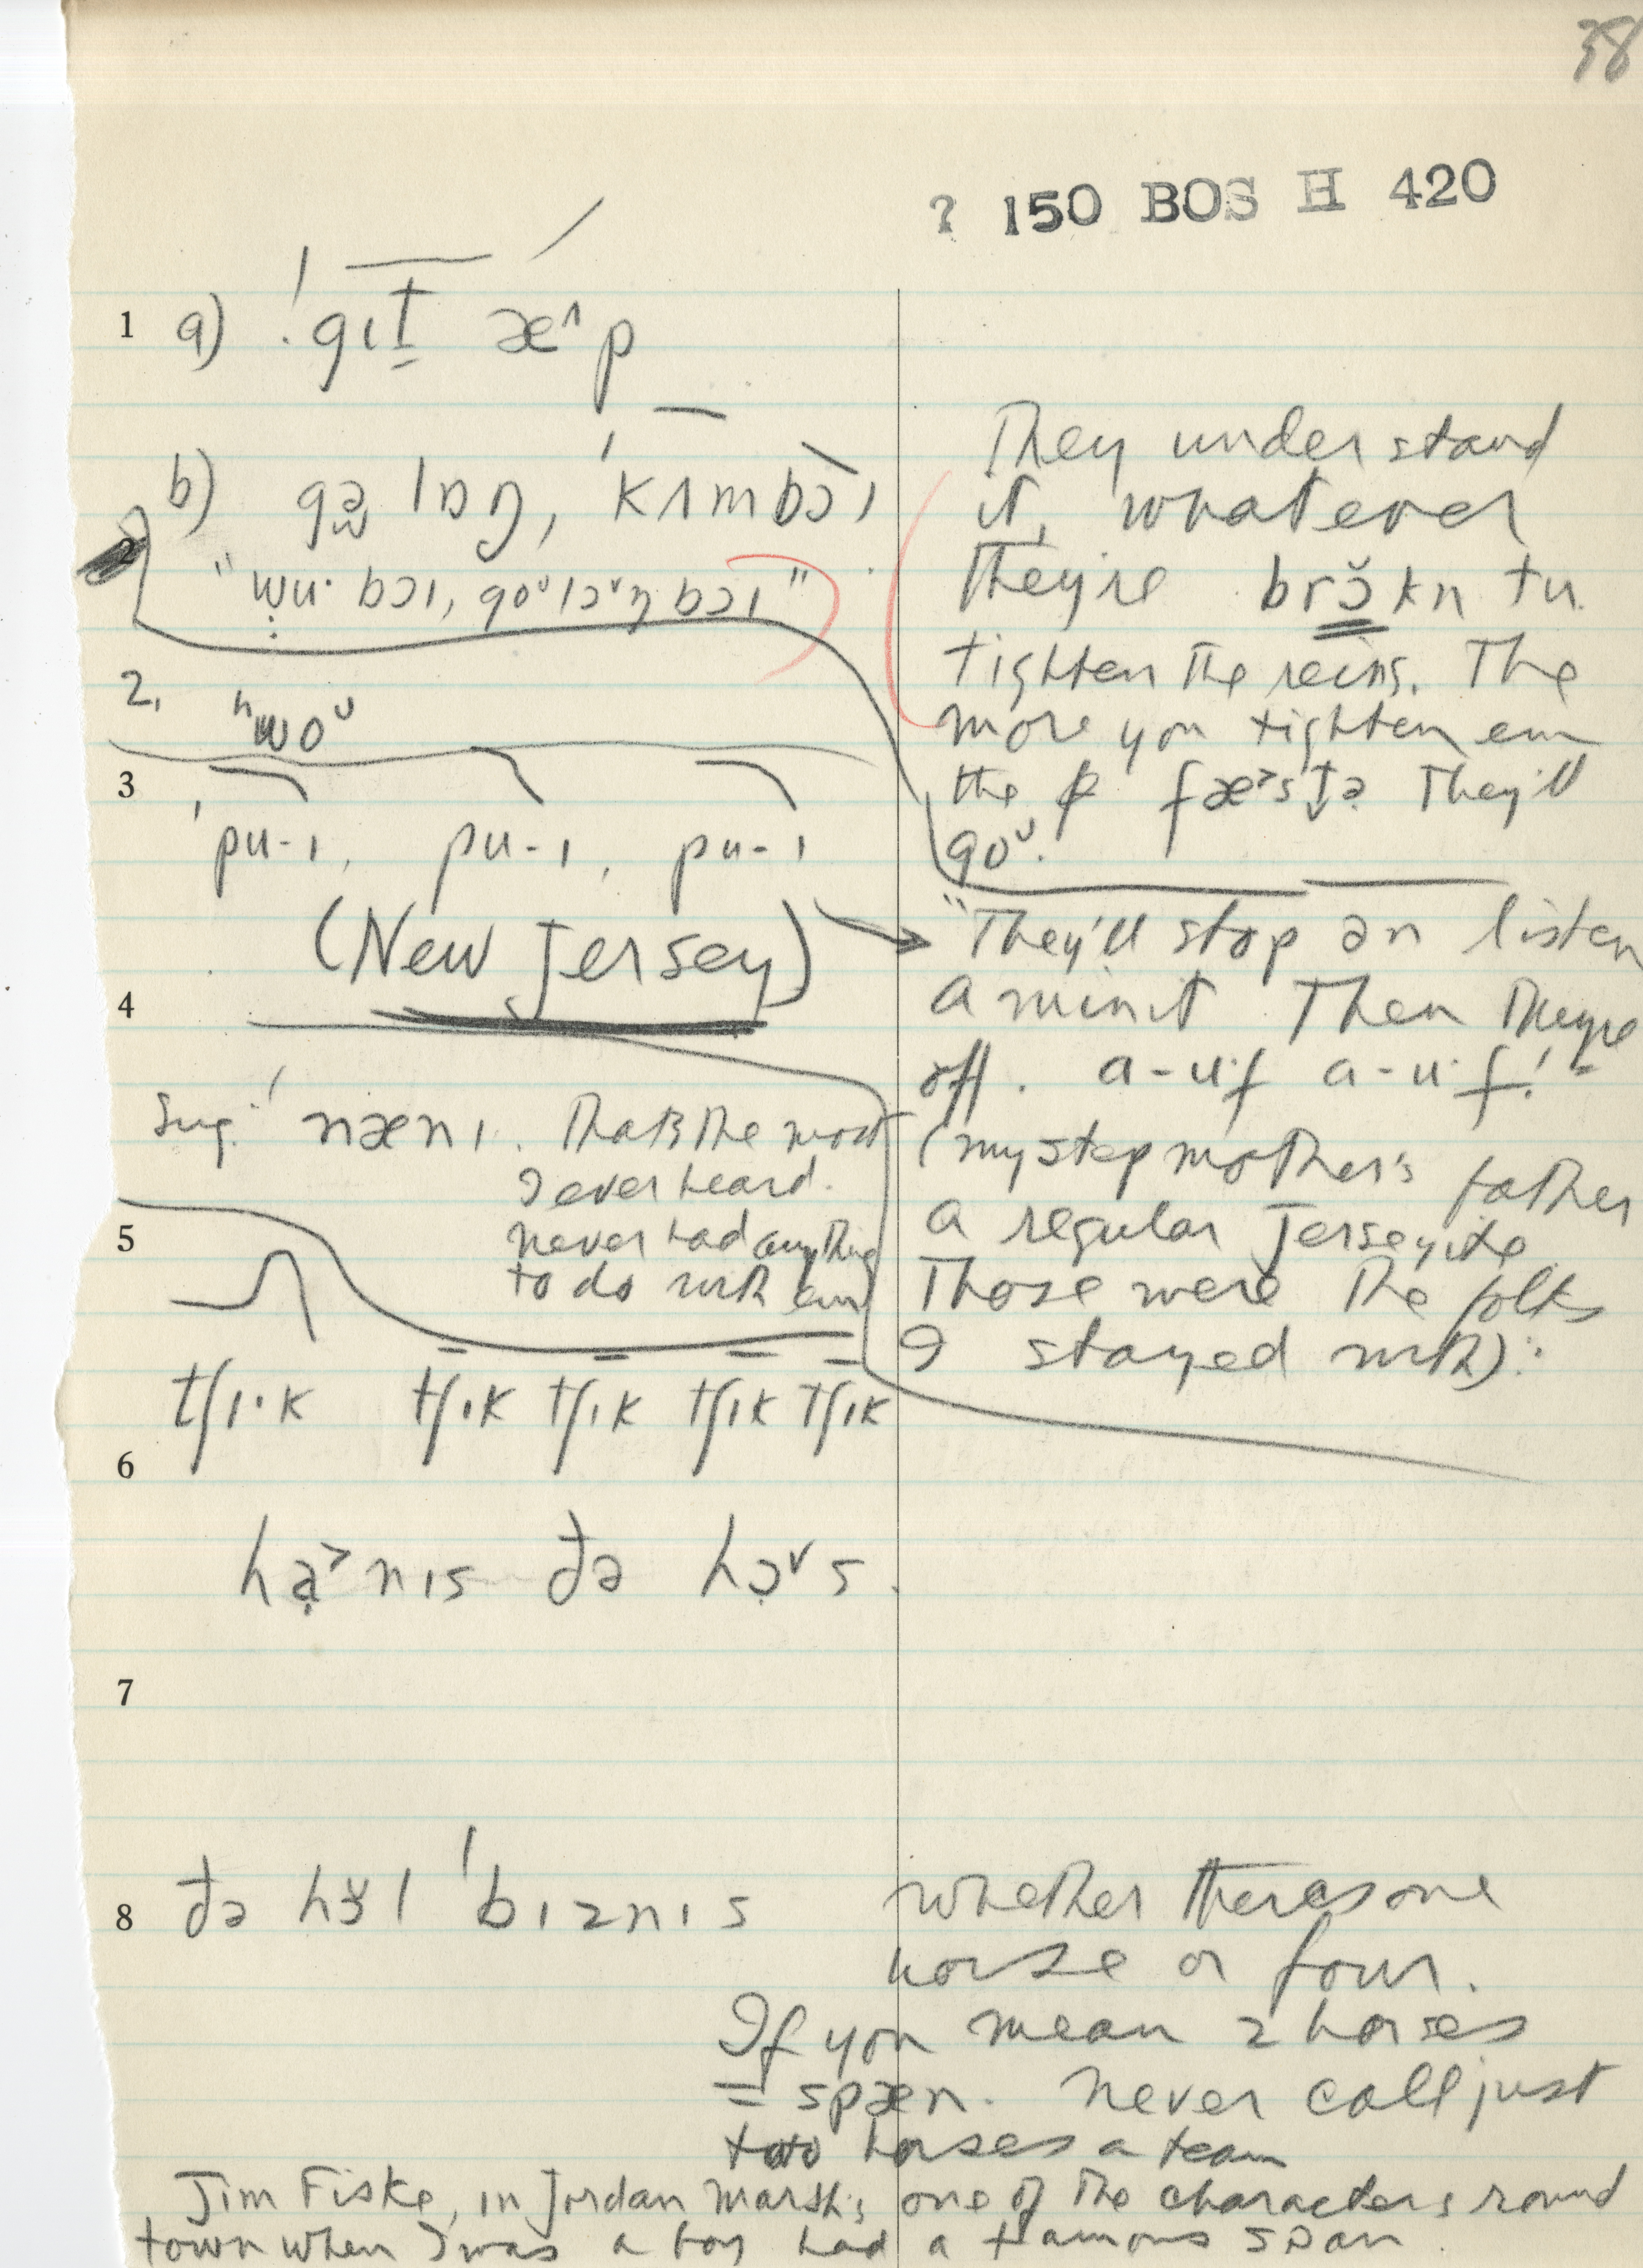 38
? 150 BOS H 420
1 a) ˈgɪt̬ æ˄p
b) gə lɒŋ, ˈkʌmbɔɪ
"wu· bɔɪ, goᵁlɔ˅ŋ bɔɪ"
2. "woᵁ
3 ˈpu-ɪ, pu-ɪ, pu-ɪ
(New Jersey)
4
Sug. ˈnænɪ. That's the most
I ever heard.
never had anything
to do with em
5
tʃɪ·k tʃɪk tʃɪk tʃɪk tʃɪk
6
hạ˃nɪs ðə hɔ̣˅s.
7
8 ðə hɜl ˈbɪznɪs
They understand
it, whatever
They're brɔ̆kn tu
tighten the reins. The
more you tighten em
the fæ˃stə They'll
goᵁ.
"They'll stop ən listen
a minit Then Theyre
off. a-u·f a-u·f!"
(my step mother's father
a regular Jerseyite
Those were the folks
I stayed with).
whether theres one
horse or four.
If you mean 2 horses
= spæn. never call just
two horses a team
Jim Fiske, in Jordan Marsh's, one of the characters round
town when I was a boy had a famous span